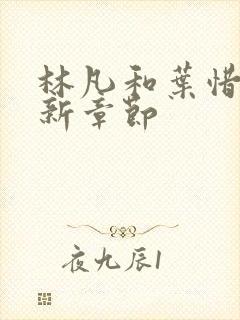 林凡和葉惜
新章節
夜九辰1